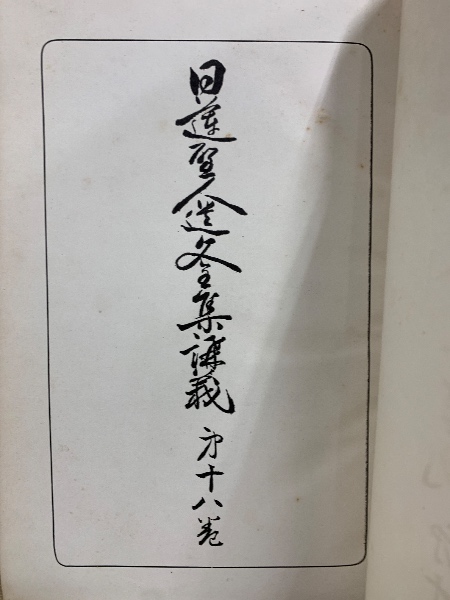 日蓮聖人遺文全集講義 第十八卷